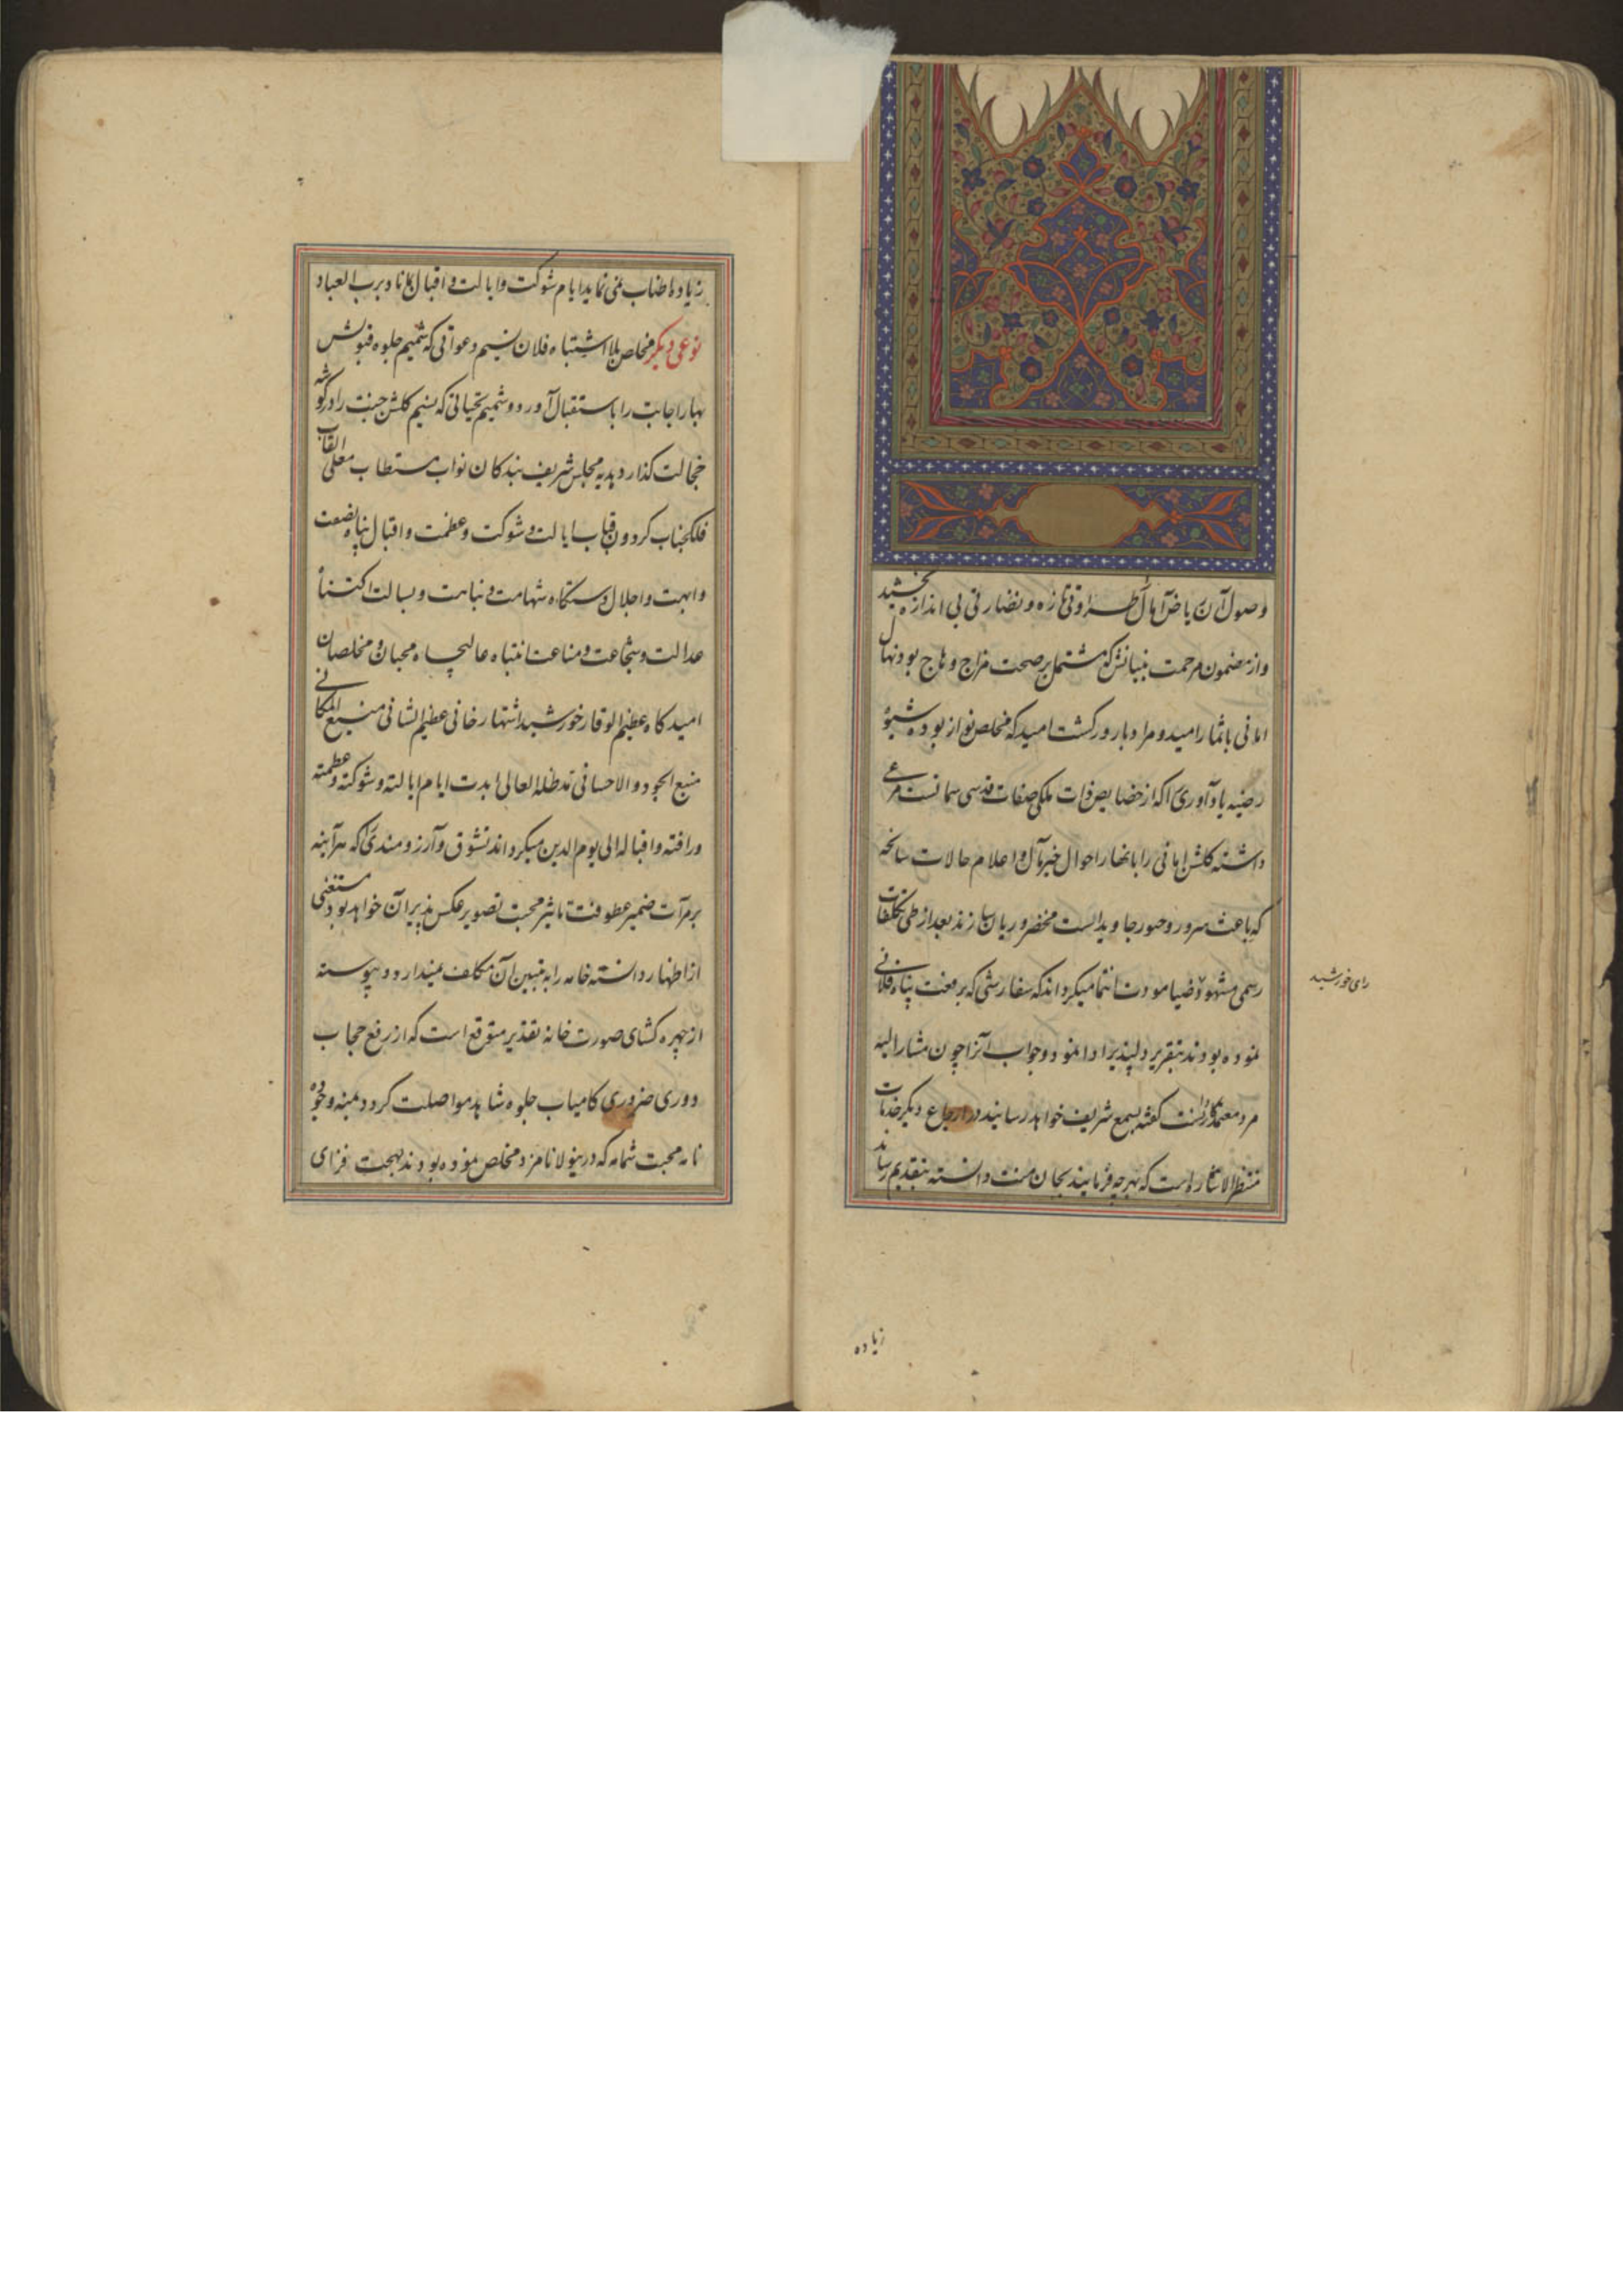 وصول آن ریاض آمال طراوتی تازه و نضارتی بی اندازه بخشید
واز مضمون مرحمت بنیانش که مشتمل بر صحت مزاج وهاج بود نهال
امانی باثمار امید و مراد بارور کشت امید که مخلص نواز بوده شیوۀ
رضیه یاد آوری را که از خصایص ذات ملکی صفات قدسی سماتست مرعی
داشته کلشن امانی را بانهار احوال خیر مآل و اعلام حالات سانحه
که باعث سرور و حضور جاویدانست مخضر و ریان سازند بعد از طی تکلفات
رسمی مشهود ضیا مودت انتما میکرداند که سفارشی که برفعت پناه فلانی
نموده بودند بتقریر دلپذیر ادا نمود و جواب آنرا چون مشار الیه
مرد معتمد کفته بسمع شریف خواهد رسانید در ارجاع دیکر خدمات
منتظر الاشاره است که بهرچه فرمایند بجان منت دانسته بتقدیم رساند
رای خورشید
زیاده
زیاده اطناب نمی نماید ایام شوکت و ایالت و اقبال بماناد برب العباد
نوعی دیکر مخلص بلا اشتباه فلان نسیم دعواتی که شمیم جلوه قبولش
بهار اجابت را باستقبال آورد و شمیم تحیاتی که نسیم کلشن جنت را در کوشه
خجالت کذارد هدیه مجلس شریف بندکان نواب مستطاب معلی القاب
فلکجناب کردون قباب ایالت و شوکت و عظمت و اقبال پناه
وابهت و اجلال دستکاه شهامت و نباهت و بسالت اکتناه
عدالت و شجاعت و مناعت انتباه عالیجاه محبان و مخلصان
امیدکاه عظیم الوقار خورشید اشتهار خانی عظیم الشانی منیع المکانی
منبع الجود و الاحسانی مد ظله العالی ابدت ایام ایالته و شوکته و عظمته
ورافته و اقباله الی یوم الدین میکرداند تشوق و آرزومندی را که هر آینه
بر مرآت ضمیر عطوفت تاثیر محبت تصویر عکس پذیر آن خواهد بود مستغنی
از اظهار دانسته خامه را به تبیین آن مکلف نمیدارد و پیوسته
از چهره کشای صورت خانه تقدیر متوقع است که از رفع حجاب
دوری ضروری کامیاب جلوه شاهد مواصلت کردد بمنه وجوده
نامه محبت شمامه که درینولا نامزد مخلص نموده بودند بهجت فزای